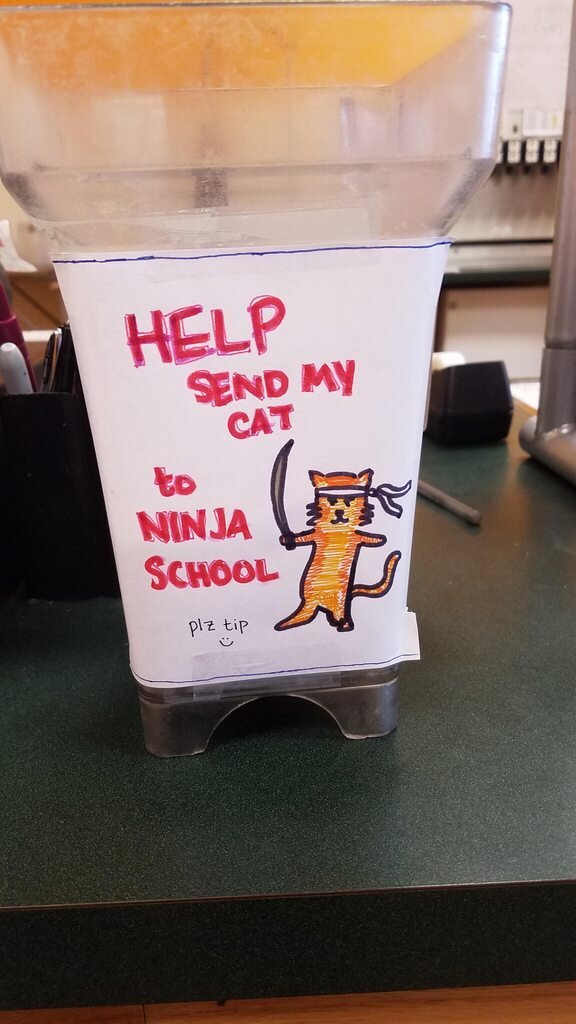 HELP
SEND MY
CAT
to
NINJA
SCHOOL
plz tip